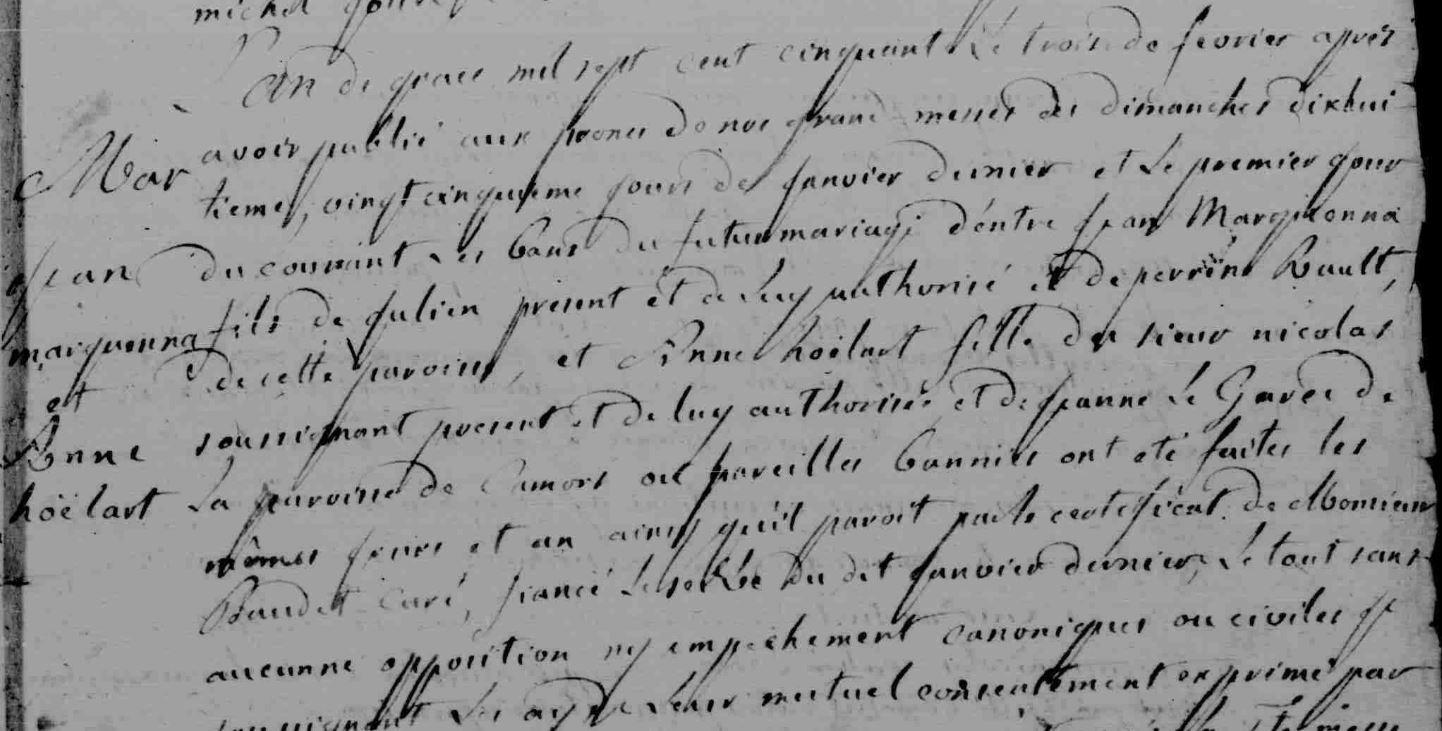 michel
L'an de grace mil sept cent cinquante Le trois de fevrier apres
avoir publié aux prones de nos grand-messes des dimanches dixhui-
tieme, vingt cinquieme jours de janvier dernier et Le premier jour
du courant Les bans du futur mariage d'entre jean Marquenna
fils de julien present et de Luy authorisé et de perrine Rault,
de cette paroisse, et Anne hoëlart fille du sieur nicolas
soussignant present et de luy authorisée et de jeanne Le Garec de
La paroisse de Camors ou pareilles bannies ont eté faites les
mêmes jours et an ainsy qu'il paroit par le certificat de Monsieur
Baudet Curé, fiancé du dit janvier dernier, Le tout sans
aucunne opposition ny empechement canoniques ou civiles je
soussignant Les ay de Leur mutuel consentement exprimé par
messe
Mar
jean
marquenna
et
Anne
hoëlart